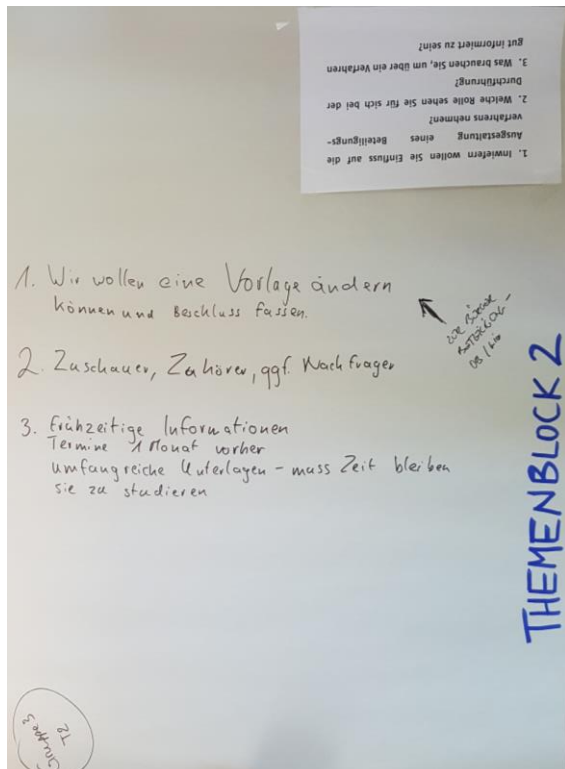 1. Inwiefern wollen Sie Einfluss auf die
Ausgestaltung eines Beteiligungs-
verfahrens nehmen?
2. Welche Rolle sehen Sie für sich bei der
Durchführung?
3. Was brauchen Sie, um über ein Verfahren
gut informiert zu sein?
1. Wir wollen eine Vorlage ändern
können und Beschluss fassen.
ZUR BÜRGER
BETEILIGUNG -
OB / Wie
2. Zuschauer, Zuhörer, ggf. Nachfrager
3. Frühzeitige Informationen
Termine 1 Monat vorher
umfangreiche Unterlagen - muss Zeit bleiben
sie zu studieren
THEMENBLOCK 2
Gruppe 3
T2